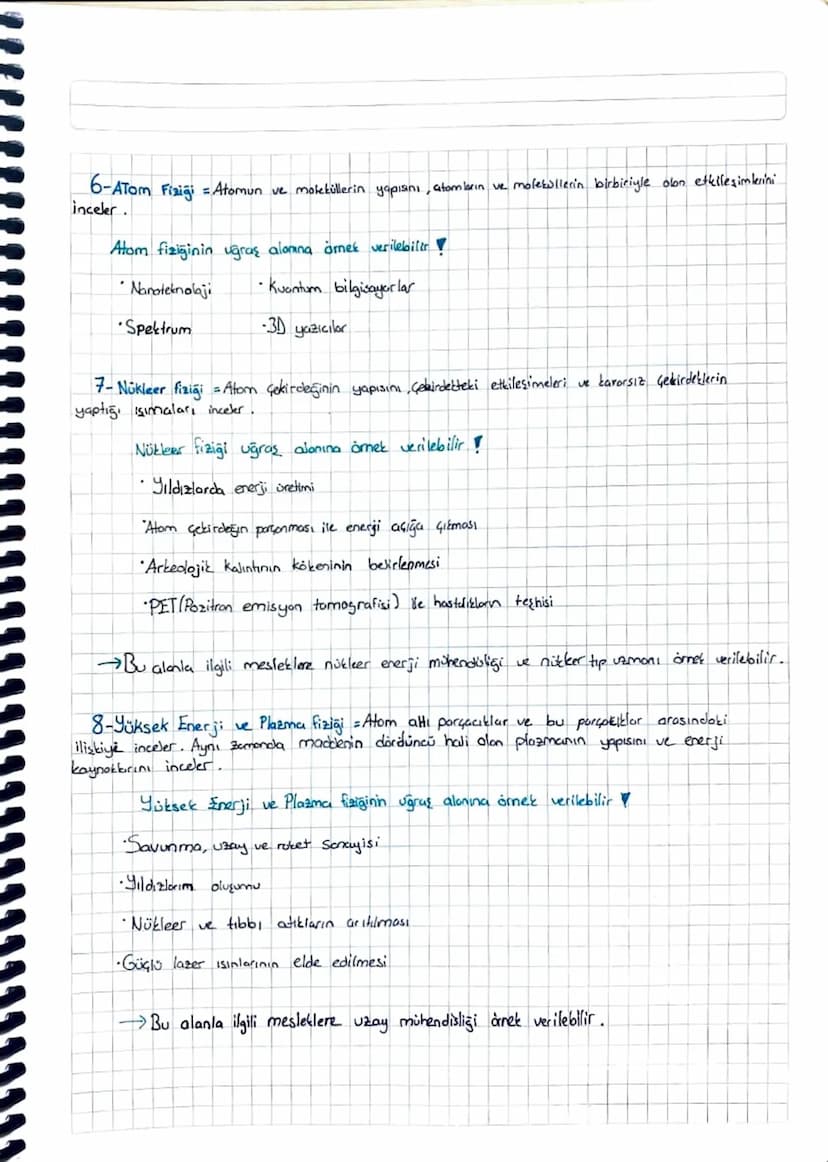 6-Atom Fiziği = Atomun ve moleküllerin yapısını, atomların ve moleküllerin birbiriyle olan etkileşimlerini
inceler.
Atom fiziğinin uğraş alanına örnek verilebilir !
· Nanoteknoloji · Kuantum bilgisayarlar
· Spektrum · 3D yazıcılar
7- Nükleer fiziği = Atom çekirdeğinin yapısını, çekirdekteki etkileşimeleri ve kararsız çekirdeklerin
yaptığı ışımaları inceler.
Nükleer fiziği uğraş alanına örnek verilebilir !
· Yıldızlarda enerji üretimi
· Atom çekirdeğin parçanması ile enerji açığa çıkması
· Arkeolojik kalıntının kökeninin belirlenmesi
· PET (Pozitron emisyon tomografisi) ile hastalıkların teşhisi
→ Bu alanla ilgili mesleklere nükleer enerji mühendisliği ve nükleer tıp uzmanı örnek verilebilir.
8-Yüksek Enerji ve Plazma fiziği = Atom altı parçacıklar ve bu parçacıklar arasındaki
ilişkiyi inceler. Aynı zamanda maddenin dördüncü hali olan plazmanın yapısını ve enerji
kaynaklarını inceler.
Yüksek Enerji ve Plazma fiziğinin uğraş alanına örnek verilebilir !
· Savunma, uzay ve roket sanayisi
· Yıldızların oluşumu
· Nükleer ve tıbbı atıkların arıtılması
· Güçlü lazer ışınlarının elde edilmesi
→ Bu alanla ilgili mesleklere uzay mühendisliği örnek verilebilir.